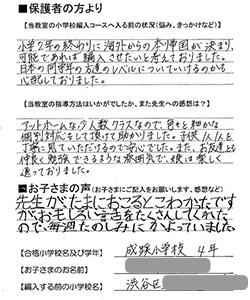 ■保護者の方より
【当教室の小学校編入コースへ入る前の状況（悩み、きっかけなど）】
小学2年の終わりに海外からの本帰国が決まり、
可能であれば編入させたいと考えておりました。
日本の同学年の友達のレベルについていけるのかも
心配しておりました。
【当教室の指導方法はいかがでしたか、また先生への感想は？】
アットホームな少人数クラスなので、色々と細かな
個別対応をして頂けて助かりました。子供一人一人を
丁寧に見ていただけるので安心でした。また、お友達とも
仲良く勉強できるような雰囲気で、娘は楽しく
通っておりました。
■お子さまの声（お子さまにご記入をお願いします、感想など）
先生がたまにおこるとこわかったです
がおもしろい言をたくさんしてくれた
ので毎週たのしみにかよっていました。
【合格小学校名及び学年】 成蹊小学校 4年
【お子さまのお名前】
【編入する前の小学校名】 渋谷区